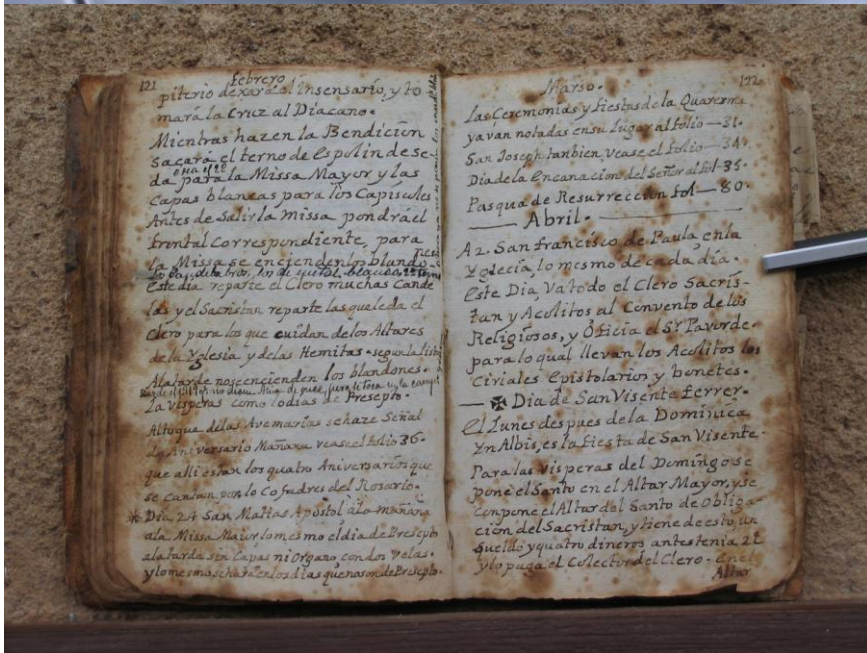 121
febrero
piterio dexara al Insensario, y to
mará la Cruz al Diacano.
Mientras hazen la Bendicion
sacara el terno de Espolin de se-
da para la Missa Mayor y las
Capas blancas para los Capisules
Antes de Salir la Missa pondrá el
frontal Correspondiente, para
la Missa se encienden los blando
nes
este dia reparte el Clero muchas Cande
las y el Sacristan reparte las que le da el
Clero para los que cuidan de los Altares
de la Yglesia y de las Hemitas. segun la lista
A la tarde no se encienden los blandones.
La visperas como lo dias de Presepto.
Al toque de las Ave marias se haze Señal
de Aniversario Mañana vease el folio 36.
que alli estan los quatro Aniversarios que
se cantan por lo Cofadres del Rosario.
Dia 24 San Matias Apostol a la mañana
a la Missa Maior lo mesmo el dia de Presepto
a la tarde sin Capas ni Organo con dos Velas.
y lo mesmo se hara en los dias que no son de Presepto.
122
Marso.
Las Ceremonias y fiestas de la Quaresma
ya van notadas en su lugar al folio — 31.
San Joseph tanbien vease el folio — 34.
Dia de la Encanacion del Señor al fol. 35.
Pasqua de Resurreccion fol — 80.
Abril.
A 2. San francisco de Paula, en la
Yglecia, lo mesmo de cada dia.
Este Dia, va todo el Clero Sacris-
tan y Acolitos al Convento de los
Religiosos, y Oficia el Sr Pavorde.
para lo qual llevan los Acolitos los
Ciriales Epistolarios y bonetes.
— ✠ Dia de San Visente ferrer.
El Lunes des pues de la Dominica
Yn Albis, es la fiesta de San Visente.
Para las visperas del Domingo se
pone el Santo en el Altar Mayor, y se
conpone el Altar del Santo de Obliga-
cion del Sacristan, y tiene de esto, un
Sueldo y quatro dineros antes tenia
y lo paga el Colector del Clero. en el
Altar